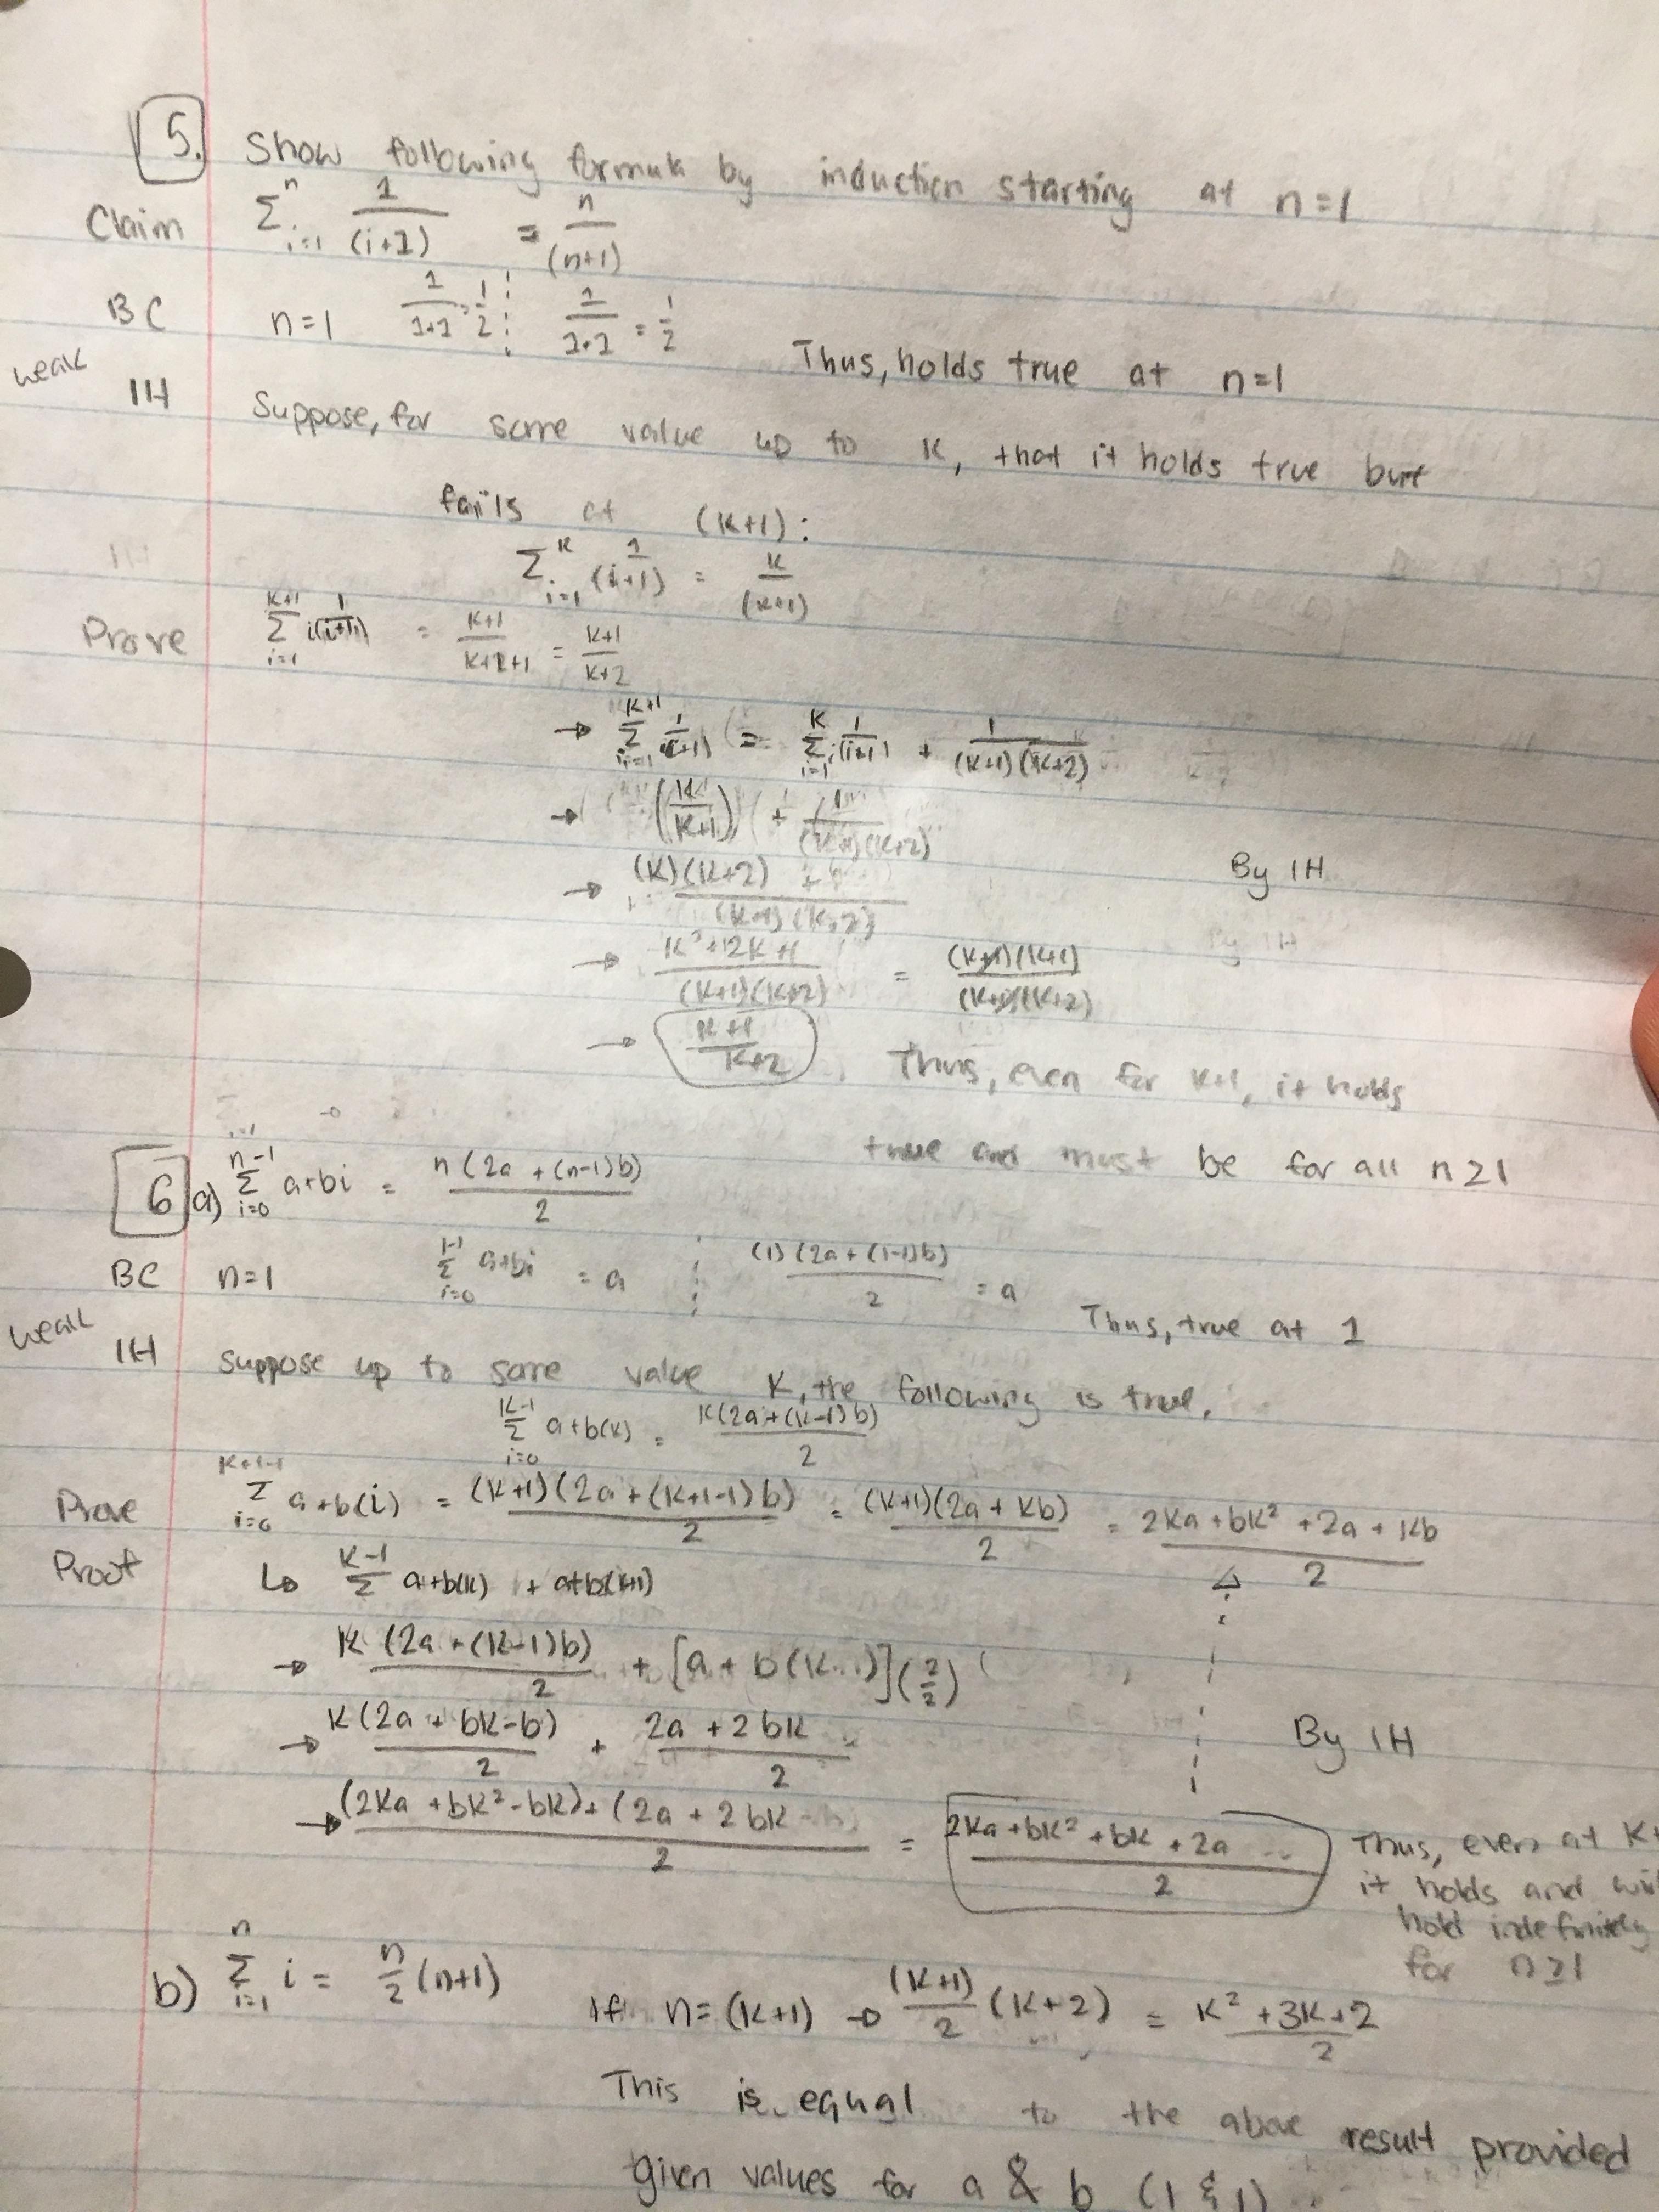 5. Show following formula by induction starting at n=1
Claim Σ_{i=1}^{n} 1/(i+1) = n/(n+1)
BC n=1 1/(1+1) = 1/2 ⋮ 1/(1+1) = 1/2 Thus, holds true at n=1
weak
IH Suppose, for some value up to k, that it holds true but
fails at (k+1):
Σ_{i=1}^{k} 1/(i+1) = k/(k+1)
Prove Σ_{i=1}^{k+1} 1/i(i+1) = (k+1)/(k+1+1) = (k+1)/(k+2)
→ Σ_{i=1}^{k+1} 1/i(i+1) = Σ_{i=1}^{k} 1/i(i+1) + 1/(k+1)(k+2)
→ (k/(k+1)) + 1/(k+1)(k+2)
→ (k)(k+2) + 1/(k+1)(k+2) By IH
→ (k²+2k+1)/(k+1)(k+2) = (k+1)(k+1)/(k+1)(k+2)
→ (k+1)/(k+2) Thus, even for k+1, it holds
true and must be for all n≥1
6 a) Σ_{i=0}^{n-1} a+bi = n(2a+(n-1)b)/2
BC n=1 Σ_{i=0}^{1-1} a+bi = a ⋮ (1)(2a+(1-1)b)/2 = a Thus, true at 1
weak
IH Suppose up to some value k, the following is true,
Σ_{i=0}^{k-1} a+b(k) = k(2a+(k-1)b)/2
Prove Σ_{i=0}^{k+1-1} a+b(i) = (k+1)(2a+(k+1-1)b)/2 = (k+1)(2a+kb)/2 = (2ka+bk²+2a+kb)/2
Proof ↳ Σ^{k-1} a+b(k) + a+b(k+1)
→ k(2a+(k-1)b)/2 + [a+b(k )](2/2)
→ k(2a+bk-b)/2 + (2a+2bk)/2 By IH
→ ((2ka+bk²-bk)+(2a+2bk)/2 = (2ka+bk²+bk+2a)/2 Thus, even at
it holds and
hold indefinitely
for n≥1
b) Σ_{i=1}^{n} i = n/2 (n+1)
If n=(k+1) → (k+1)/2 (k+2) = (k²+3k+2)/2
This is equal to the above result provided
given values for a & b (1 & 1)